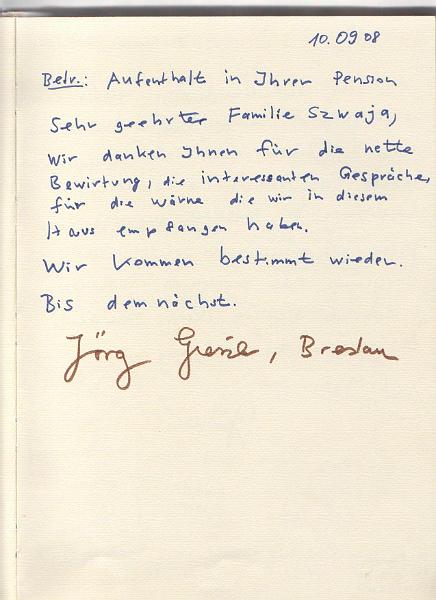 10.09.08
Betr.: Aufenthalt in Ihrer Pension
Sehr geehrte Familie Szwaja,
Wir danken Ihnen für die nette
Bewirtung, die interessanten Gespräche,
für die wärme die wir in diesem
Haus empfangen haben.
Wir kommen bestimmt wieder.
Bis demnächst.
Jörg , Breslau